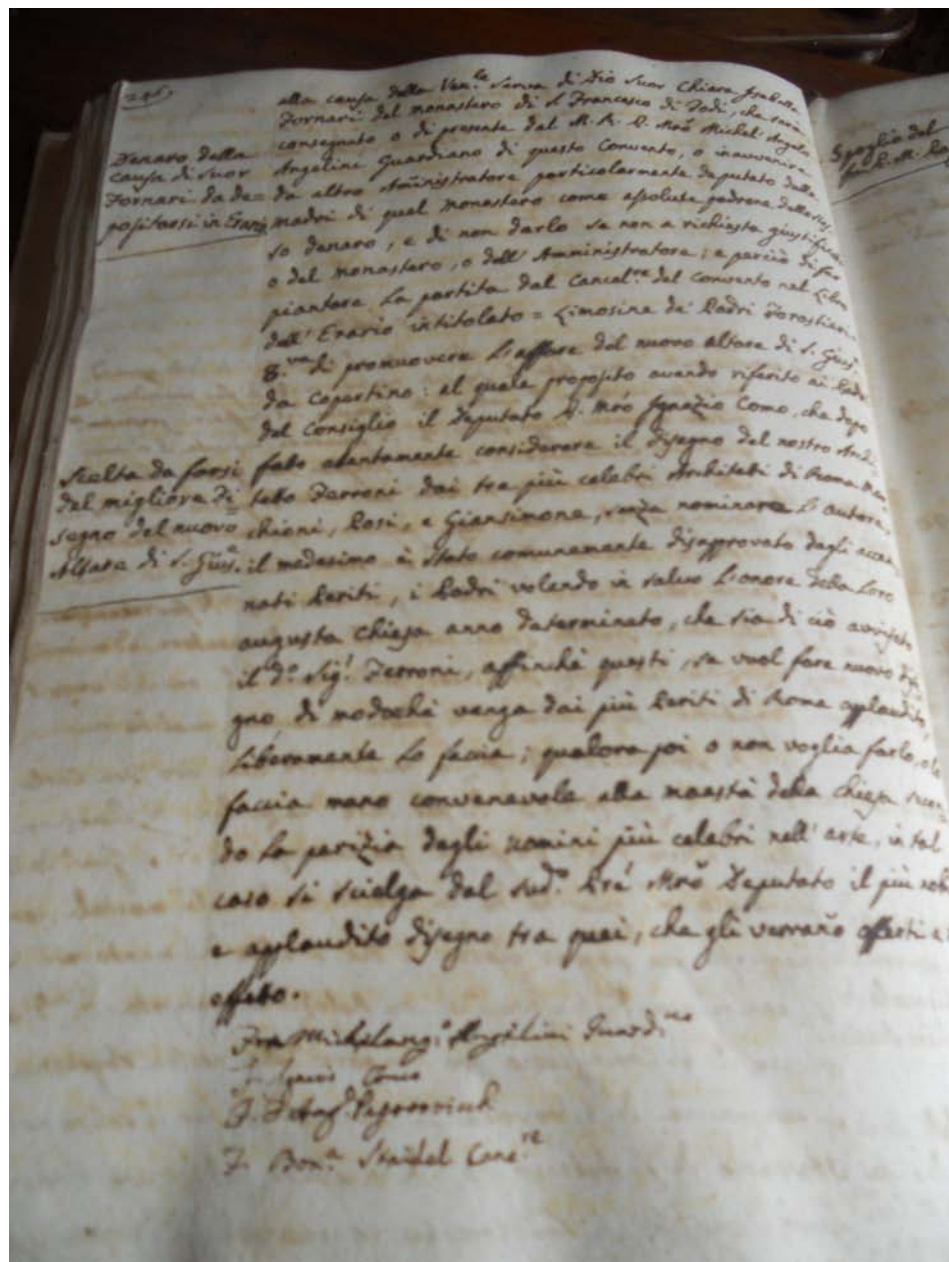 246
alla causa della Ven.le Serva di Dio Suor Chiara Isabella
Fornari del monastero di S. Francesco di Todi, che sarà
consegnato o di presente dal M. R. P. Mrõ Michel Angelo
Angelini Guardiano di questo Convento, o inavvenire
da altro Amministratore particolarmente deputato dalle
madri di quel monastero come assolute padrone dello stes-
so denaro, e di non darlo se non a richiesta giustifica
o del monastero, o dell' Amministratore; e perciò di far
piantare la partita dal Cancel.re del convento nel Libro
dell' Erario intitolato = Limosine de' Padri Forastieri
8.va di promuovere l'affare del nuovo altare di S. Gius.
da Copertino: al quale proposito avendo riferito ai Padri
del Consiglio il Deputato P. Mrõ Ignazio Como, che dopo
fatto atentamente considerare il disegno del nostro Archi
tetto Ferroni dai tre più celebri Architetti di Roma Mar
chioni, Posi, e Giansimone, senza nominare l'autore,
il medesimo è stato comunemente disapprovato dagli accen
nati Periti, i Padri volendo in salvo l'onore della loro
augusta Chiesa anno determinato, che sia di ciò avvisato
il d.o Sig.r Ferroni, affinchè questi, se vuol fare nuovo dise
gno di modochè venga dai più Periti di Roma applaudito,
liberamente lo faccia; qualora poi o non voglia farlo, o lo
faccia meno convenevole alla maestà della Chiesa secon
do la perizia degli uomini più celebri nell' arte, in tal
caso si scielga dal sud.o Prẽ Mrõ Deputato il più nobi
e applaudito disegno tra quei, che gli verrano offerti a
effetto.
Fra Michelang.o Angelini Guard.no
F. Ignazio Como
F. Bon.a Staidel Canc.re
Denaro della
causa di Suor
Fornari da de=
positarsi in Erario
Scelta da farsi
del migliore di=
segno del nuovo
Altare di S. Gius.e
Spoglio del